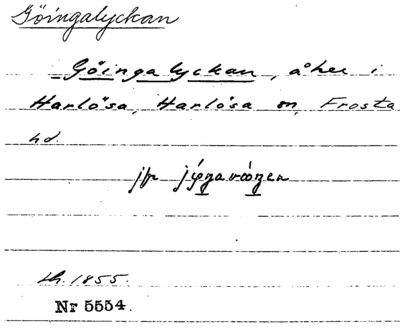 Göingalyckan
Göingalyckan, åker i
Harlösa, Harlösa sn, Frosta
hd.
jfr jøgavägen
lh. 1855.
Nr 5554.